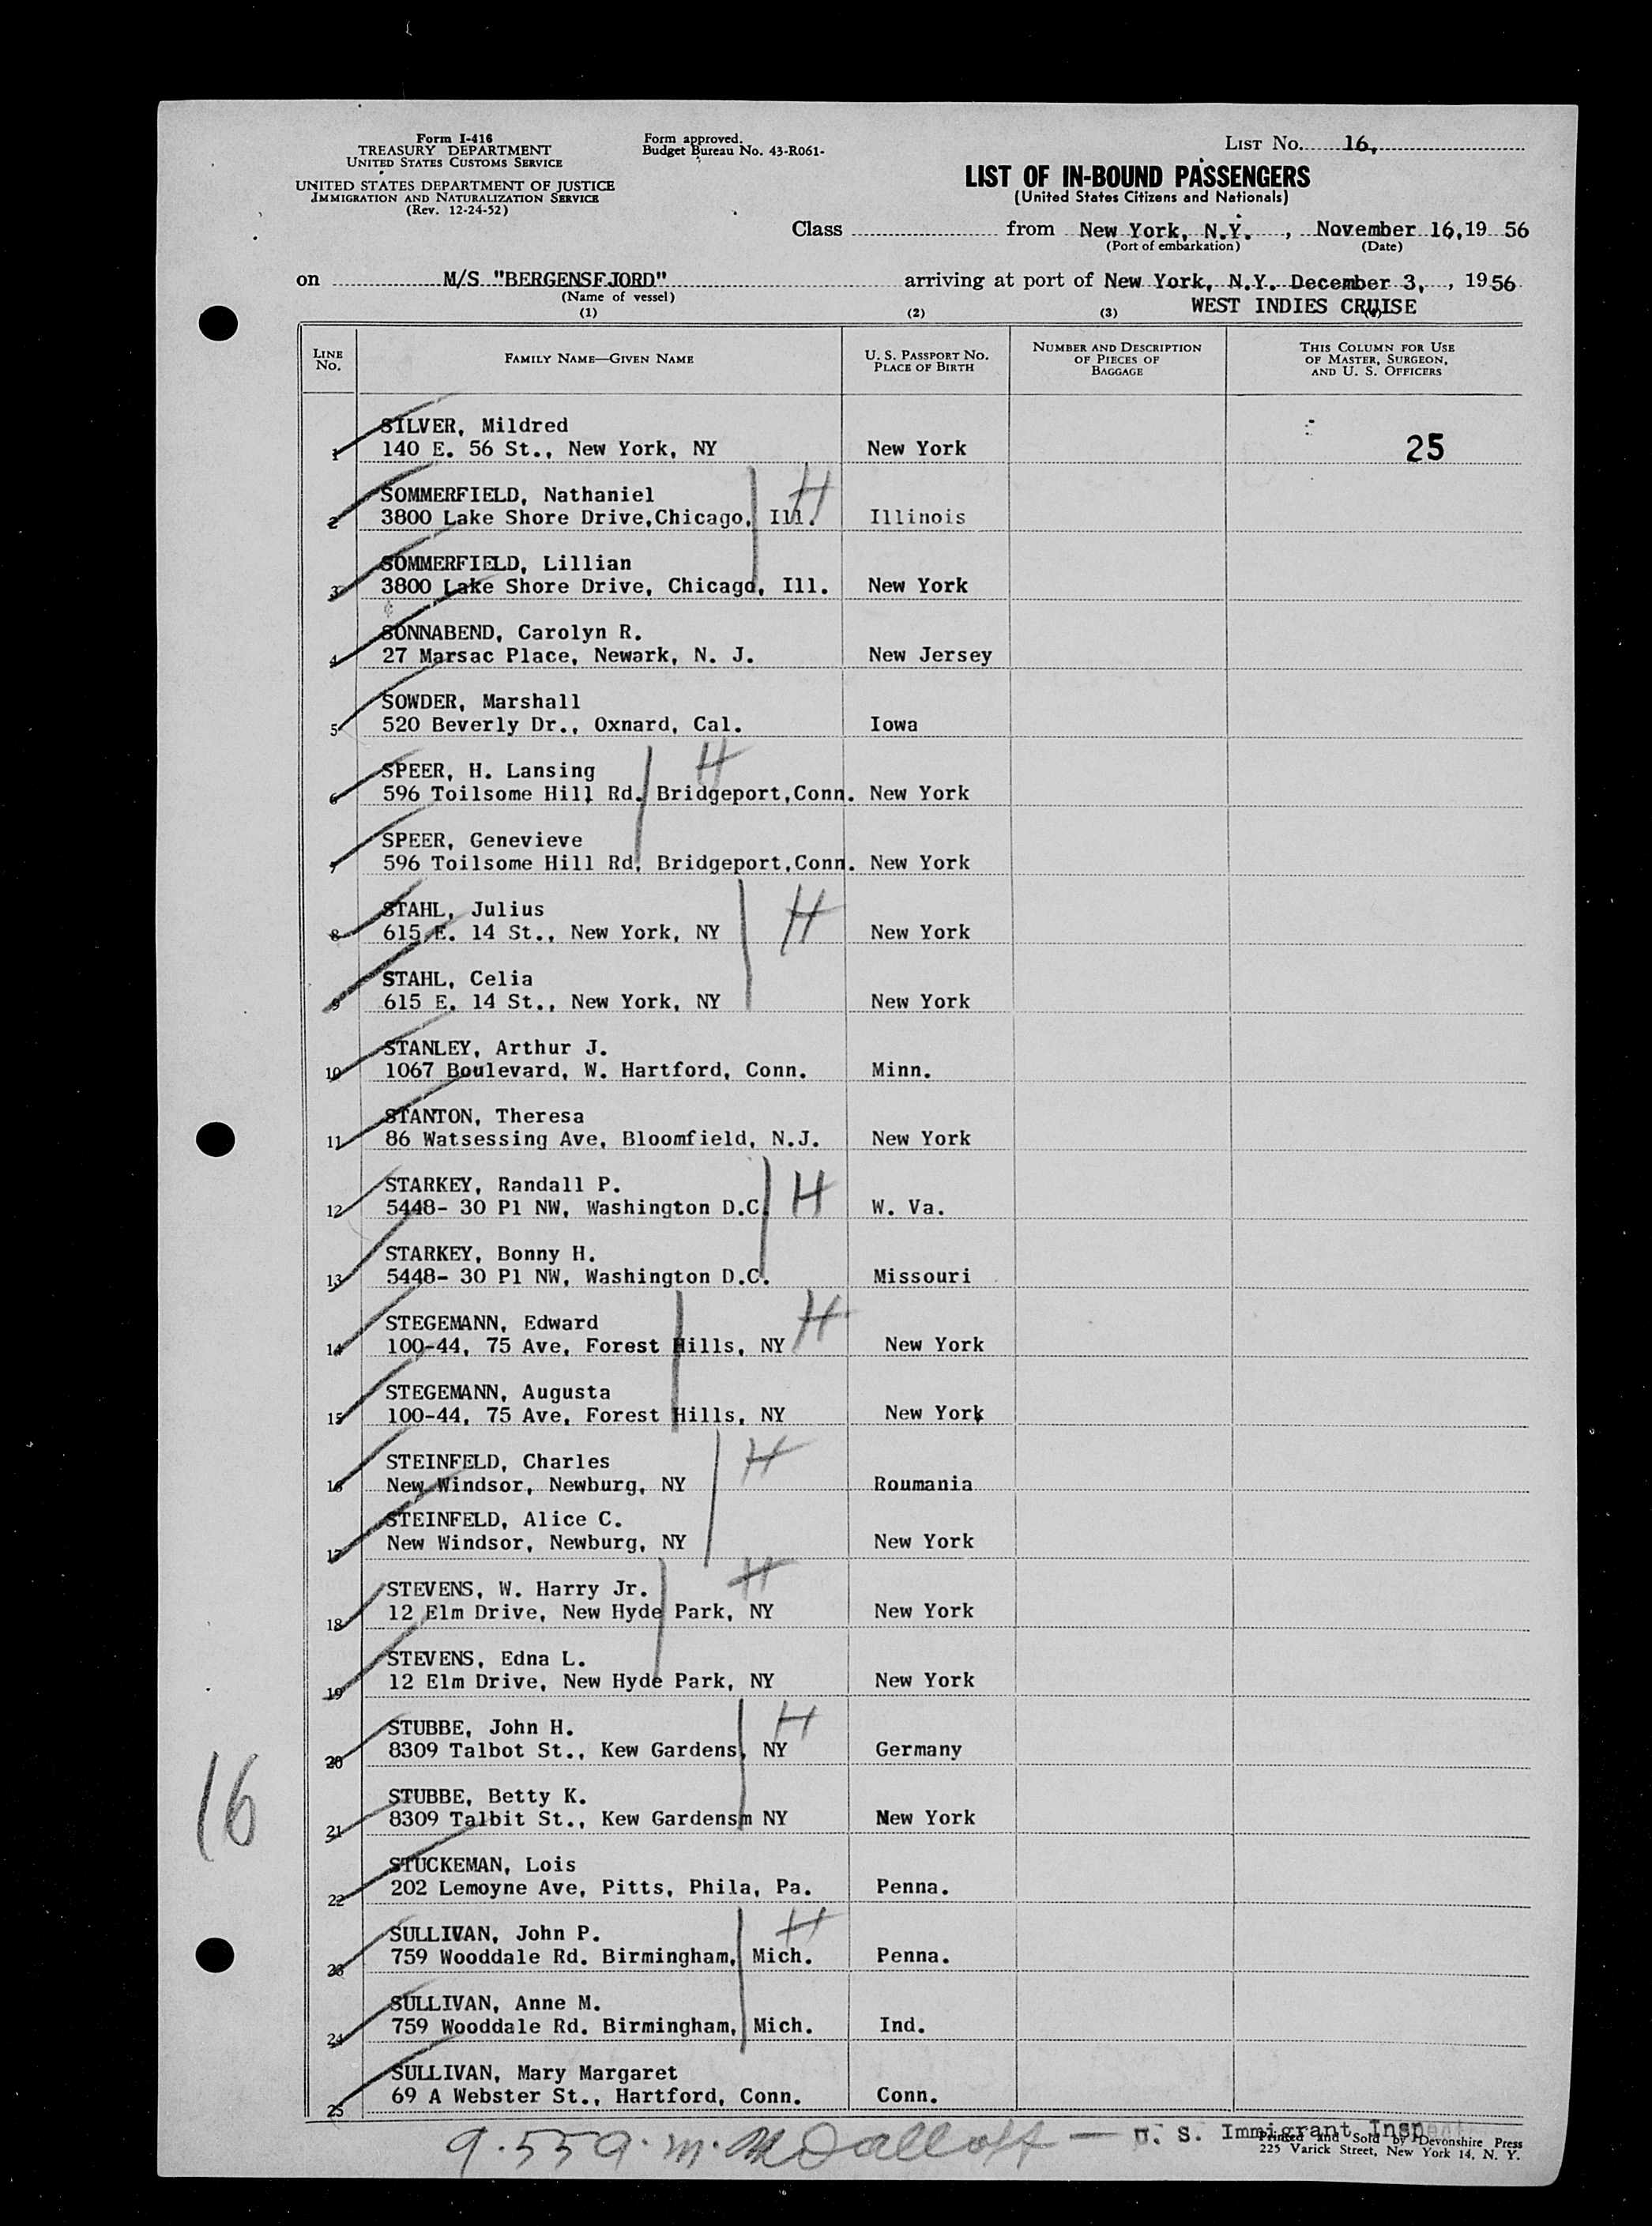 Form I-416
TREASURY DEPARTMENT
UNITED STATES CUSTOMS SERVICE
UNITED STATES DEPARTMENT OF JUSTICE
IMMIGRATION AND NATURALIZATION SERVICE
(Rev. 12-24-52)
Form approved.
Budget Bureau No. 43-R061-
LIST No. 16,
LIST OF IN-BOUND PASSENGERS
(United States Citizens and Nationals)
Class from New York, N.Y. , November 16,19 56
(Port of embarkation) (Date)
on M/S "BERGENSFJORD" arriving at port of New York, N.Y. December 3, , 1956
(Name of vessel)
WEST INDIES CRUISE
(1) (2) (3) (4)
LINE No. FAMILY NAME—GIVEN NAME U. S. PASSPORT No. PLACE OF BIRTH NUMBER AND DESCRIPTION OF PIECES OF BAGGAGE THIS COLUMN FOR USE OF MASTER, SURGEON, AND U. S. OFFICERS
SILVER, Mildred
1 140 E. 56 St., New York, NY New York 25
SOMMERFIELD, Nathaniel H
2 3800 Lake Shore Drive,Chicago, Ill. Illinois
SOMMERFIELD, Lillian
3 3800 Lake Shore Drive, Chicago, Ill. New York
SONNABEND, Carolyn R.
4 27 Marsac Place, Newark, N. J. New Jersey
SOWDER, Marshall
5 520 Beverly Dr., Oxnard, Cal. Iowa
SPEER, H. Lansing H
6 596 Toilsome Hill Rd. Bridgeport,Conn. New York
SPEER, Genevieve
7 596 Toilsome Hill Rd. Bridgeport,Conn. New York
STAHL, Julius H
8 615 E. 14 St., New York, NY New York
STAHL, Celia
9 615 E. 14 St., New York, NY New York
STANLEY, Arthur J.
10 1067 Boulevard, W. Hartford, Conn. Minn.
STANTON, Theresa
11 86 Watsessing Ave, Bloomfield, N.J. New York
STARKEY, Randall P. H
12 5448- 30 Pl NW, Washington D.C. W. Va.
STARKEY, Bonny H.
13 5448- 30 Pl NW, Washington D.C. Missouri
STEGEMANN, Edward H
14 100-44, 75 Ave, Forest Hills, NY New York
STEGEMANN, Augusta
15 100-44, 75 Ave, Forest Hills, NY New York
STEINFELD, Charles H
16 New Windsor, Newburg, NY Roumania
STEINFELD, Alice C.
17 New Windsor, Newburg, NY New York
STEVENS, W. Harry Jr. H
18 12 Elm Drive, New Hyde Park, NY New York
STEVENS, Edna L.
19 12 Elm Drive, New Hyde Park, NY New York
STUBBE, John H. H
20 8309 Talbot St., Kew Gardens, NY Germany
STUBBE, Betty K.
21 8309 Talbit St., Kew Gardensm NY New York
16
STUCKEMAN, Lois
22 202 Lemoyne Ave, Pitts, Phila, Pa. Penna.
SULLIVAN, John P. H
23 759 Wooddale Rd. Birmingham, Mich. Penna.
SULLIVAN, Anne M.
24 759 Wooddale Rd. Birmingham, Mich. Ind.
SULLIVAN, Mary Margaret
25 69 A Webster St., Hartford, Conn. Conn.
9.55 a.m. U. S. Immigrant Inspector
Printed and Sold by Devonshire Press
225 Varick Street, New York 14, N. Y.